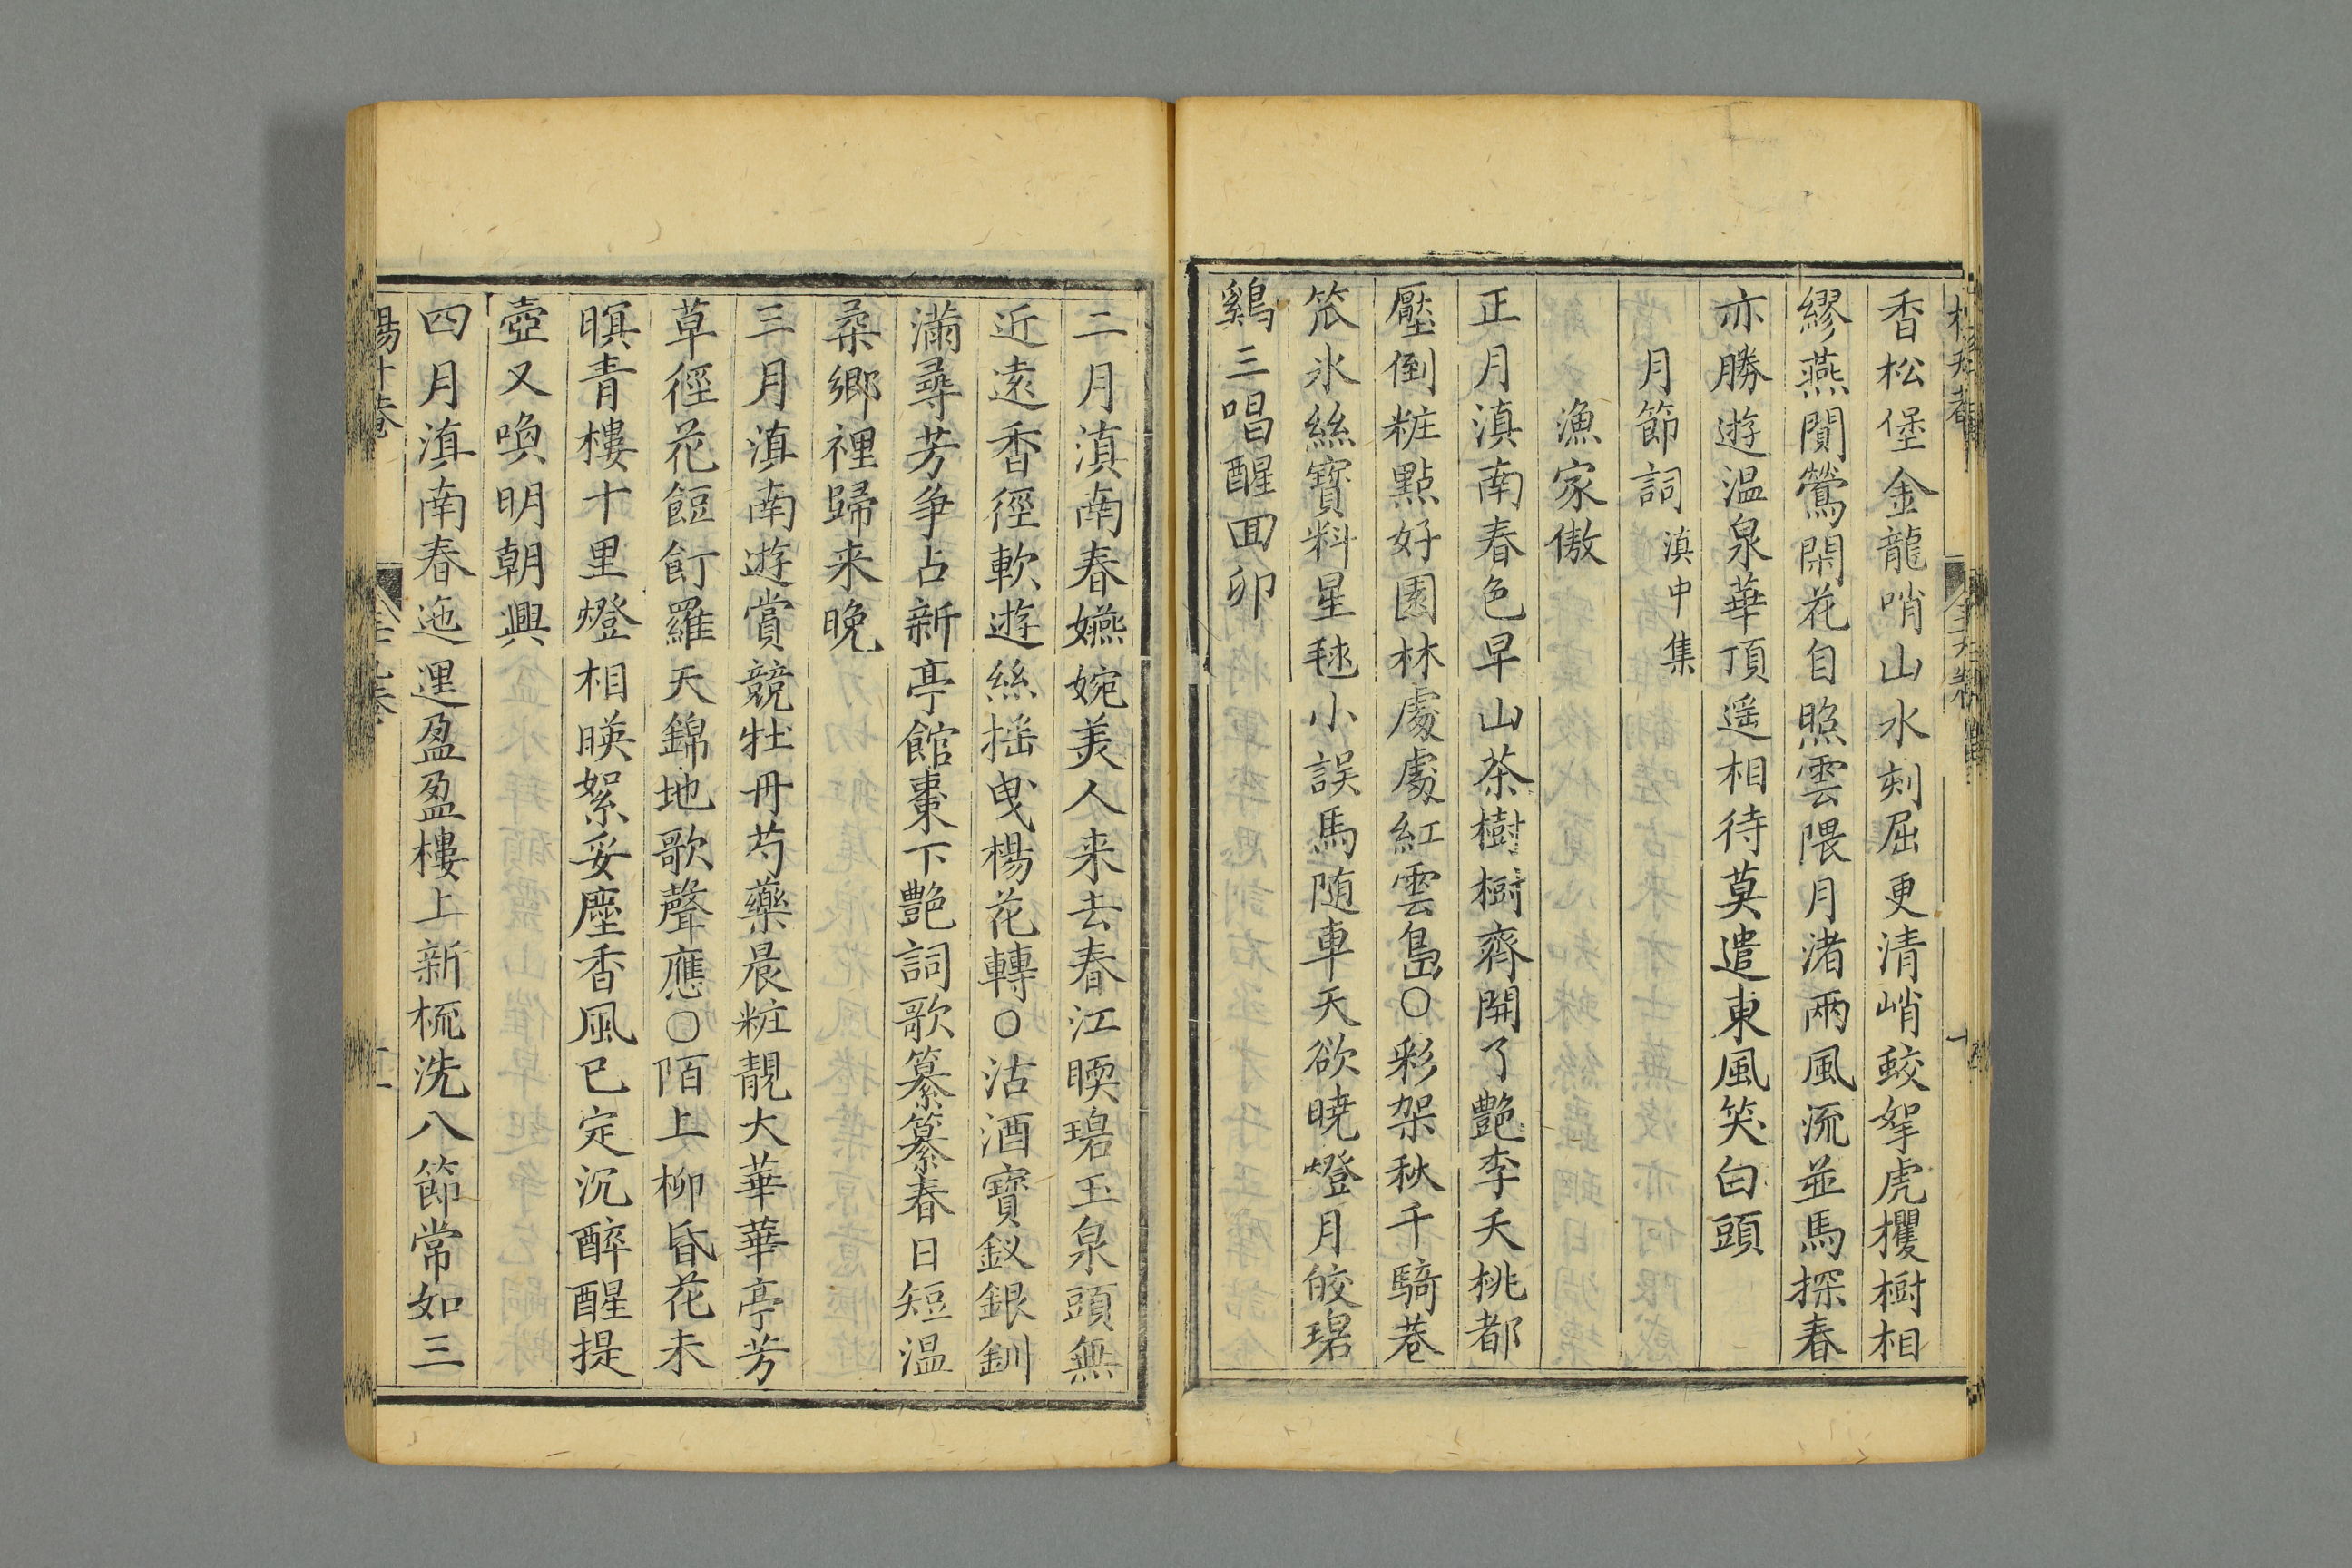 香松堡金龍哨山水刻屈更清峭蛟拏虎攫樹相
繆燕閴鶯閑花自照雲隈月渚兩風流並馬探春
亦勝遊温泉華頂遥相待莫遣東風笑白頭
月節詞滇中集
漁家傲
正月滇南春色早山茶樹樹齊開了艷李夭桃都
壓倒粧點好園林處處紅雲島○彩架秋千騎巷
笊氷絲寳料星毬小誤馬随車天欲曉燈月皎碧
鷄三唱醒回卯
二月滇南春嬿婉美人来去春江暝碧玉泉頭無
近遠香徑軟遊絲揺曳楊花轉○沽酒寳釵銀釧
滿尋芳争占新亭館棗下艷詞歌纂纂春日短温
柔鄉裡歸来晚
三月滇南遊賞競牡丹芍藥晨粧靚大華華亭芳
草徑花飣餖羅天錦地歌聲應○陌上柳昏花未
暝青樓十里燈相暎絮妥塵香風已定沉醉醒提
壺又喚明朝興
四月滇南春迤邐盈盈樓上新梳洗八節常如三